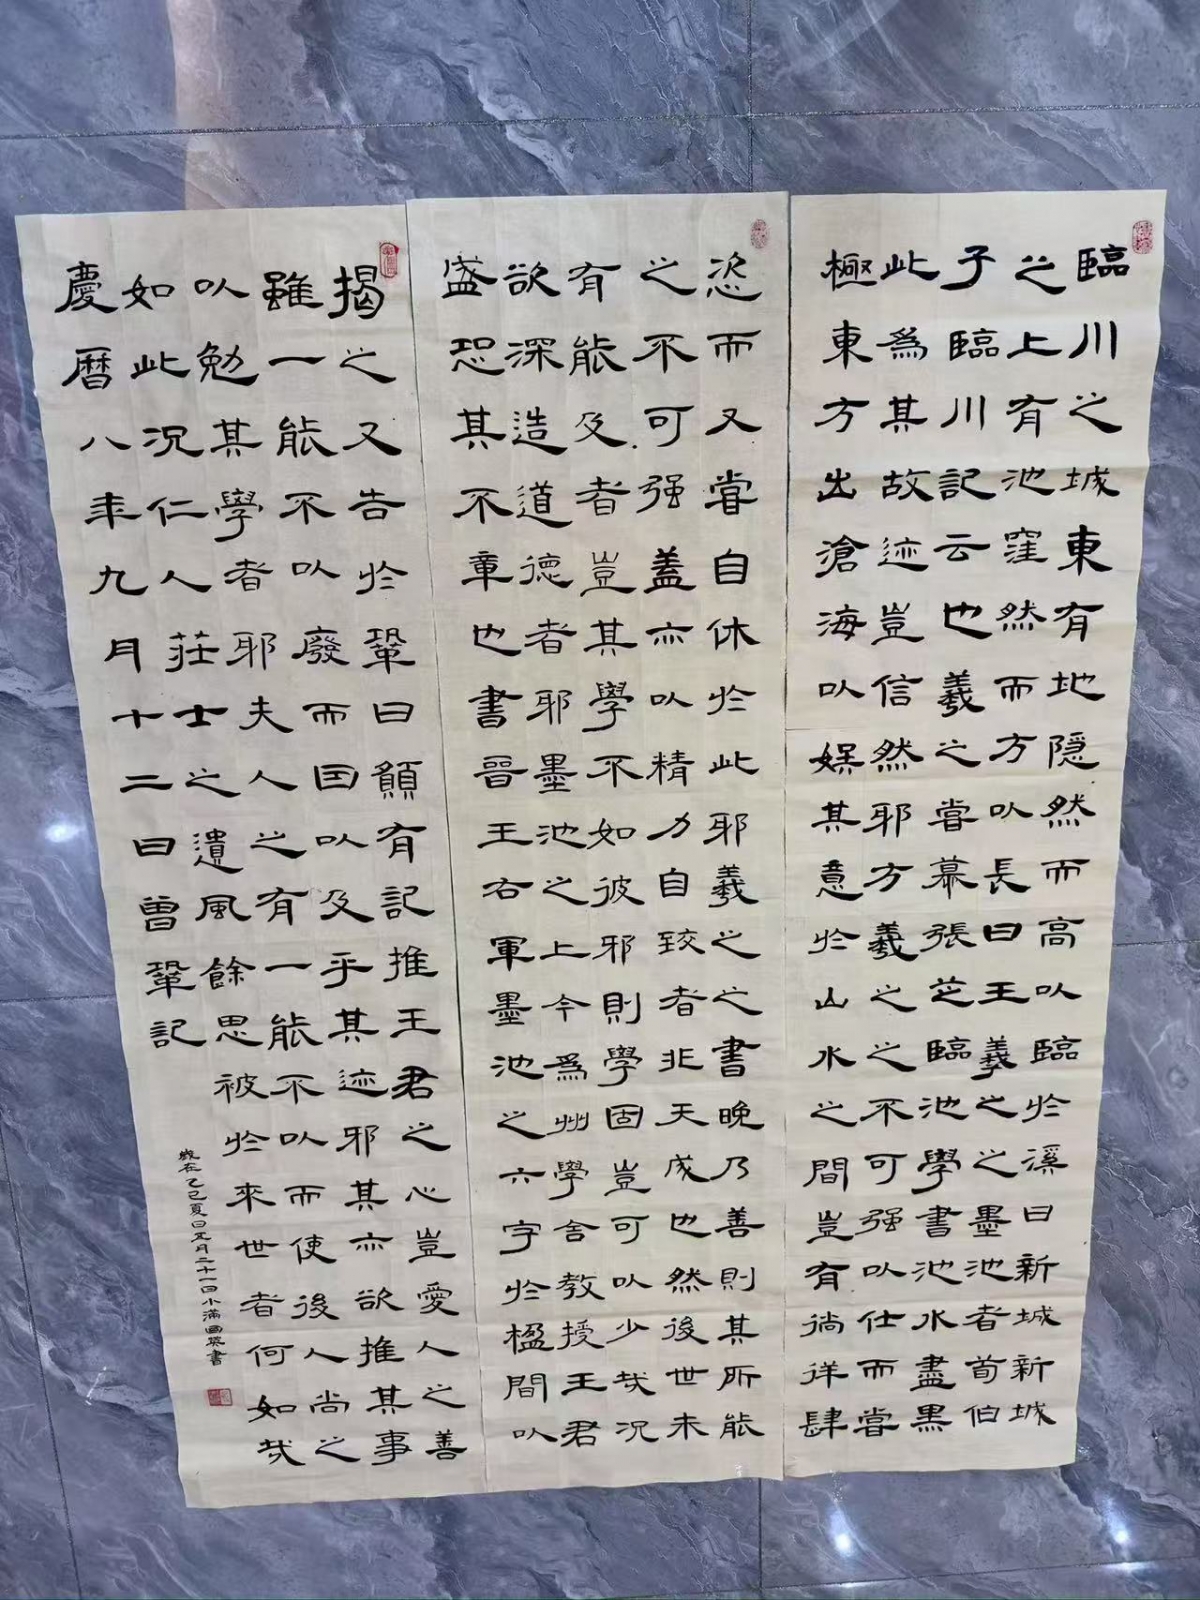 臨川之城東有地隠然而高以臨於溪曰新城新城
之上有池窪然而方以長曰王羲之之墨池者荀伯
子臨川記云也羲之嘗慕張芝臨池學書池水盡黑
此爲其故迹豈信然耶方羲之之不可强以仕而嘗
極東方出滄海以娱其意於山水之間豈有徜徉肆
恣而又嘗自休於此耶羲之之書晚乃善則其所能
之不可强蓋亦以精力自致者非天成也然後世未
有能及者豈其學不如彼邪則學固豈可以少哉况
欲深造道德者耶墨池之上今爲州學舍教授王君
盛恐其不章也書晉王右軍墨池之六字於楹間以
揭之又告於鞏曰願有記推王君之心豈愛人之善
雖一能不以廢而因以及乎其迹邪其亦欲推其事
以勉其學者耶夫人之有一能不以而使後人尚之
如此况仁人莊士之遺風餘思被於來世者何如哉
慶暦八年九月十二日曾鞏記
歲在乙巳夏日五月二十一日小滿書